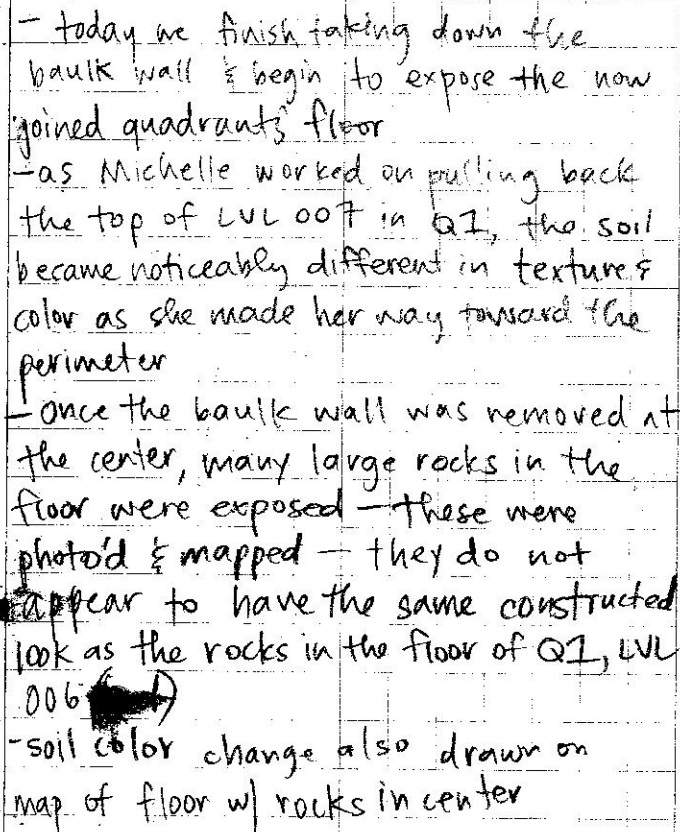 - today we finish taking down the
baulk wall & begin to expose the now
joined quadrants' floor
- as Michelle worked on pulling back
the top of LVL 007 in Q1, the soil
became noticeably different in texture &
color as she made her way toward the
perimeter
- Once the baulk wall was removed at
the center, many large rocks in the
floor were exposed - these were
photo'd & mapped - they do not
appear to have the same constructed
look as the rocks in the floor of Q1, LVL
006
- soil color change also drawn on
map of floor w/ rocks in center